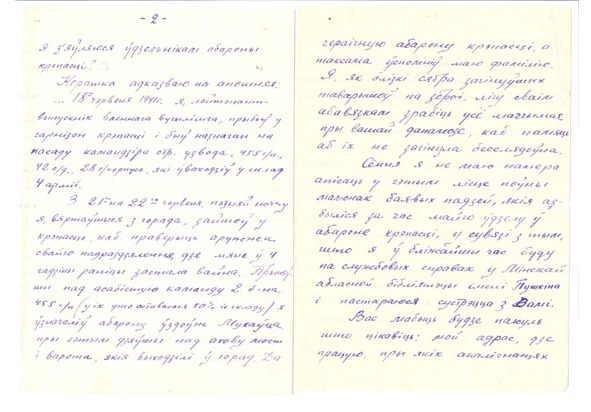 - 2 -
я з'яўляюся ўдзельнікам абароны
крэпасці?
Коратка адказваю на апошняе:
... 18го чэрвеня 1941г. я, лейтэнант-
выпускнік ваеннага вучылішча, прыбыў у
гарнізон крэпасці і быў назначан на
пасаду камандзіра стр. узвода, 455 с/п.,
42 с/д., 28 с/корпуса, які уваходзіў у склад
4 арміі.
З 21го на 22ое чэрвеня, позняй ноччу
я, вяртаўшыся з горада, зайшоў у
крэпасць, каб праверыць
свайго падраздзялення, дзе мяне ў 4
гадзіны раніцы застала вайна.
пад асабістую каманду 2 б-на
455 с/п (у іх ужо аставалася 50% іх складу) я
узначаліў абарону ўздоўж Мухаўца
пры гэтым узяўшы пад ахову мост
і варота, якія выходзілі ў горад. За
гераічную абарону крэпасці, а
таксама ўспомніў маю фамілію.
Я, як блізкі сябра загінуўшых
таварышоў па зброі, лічу сваім
абавязкам зрабіць усё магчымае
пры вашай дапамозе, каб памяць
аб іх не загінула бесследона.
Сёння я не маю намера
апісаць у гэтым лісце поўны
малюнак баявых падзей, якія ад-
быліся за час майго ўдзелу ў
абароне крэпасці, у сувязі з тым,
што я ў бліжайшы час буду
па службовых справах у Мінскай
абласной бібліятэцы імені Пушкіна
і пастараюся сустрэцца з Вамі.
Вас мабыць будзе пакуль
што цікавіць: мой адрас, дзе
працую, пры якіх акалічнасцях